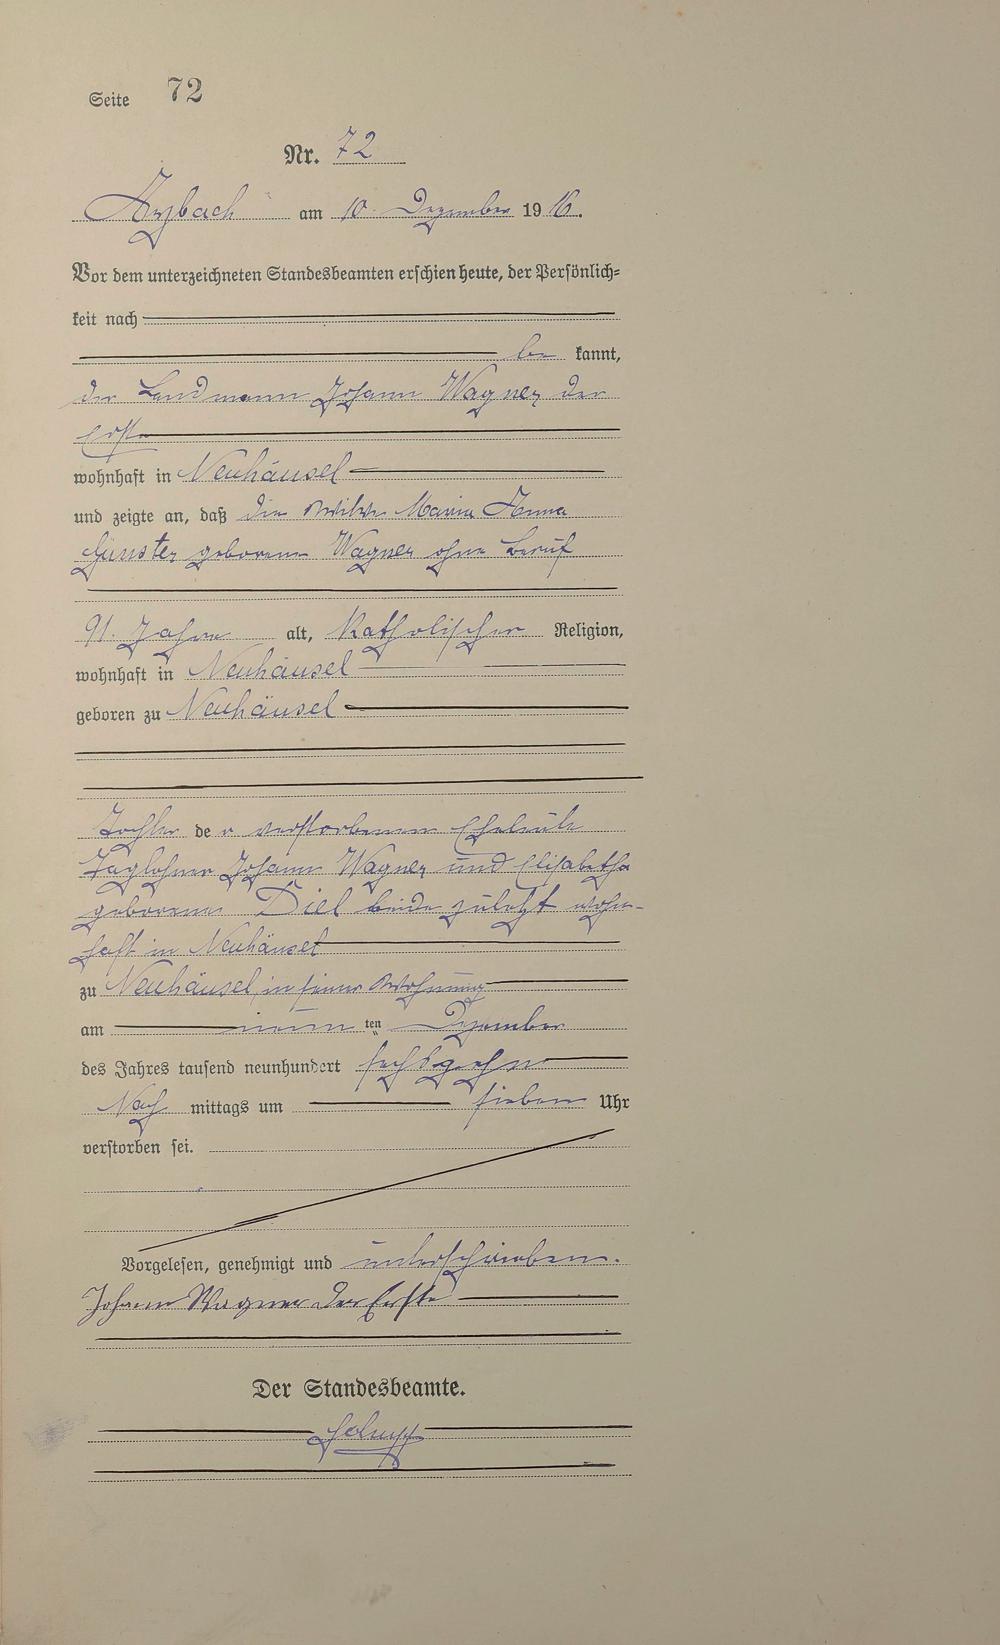 Seite 72
Nr. 72
Arzbach am 10. Dezember 1916.
Vor dem unterzeichneten Standesbeamten erschien heute, der Persönlich=
keit nach
be kannt,
der Landmann Johann Wagner der
Erste
wohnhaft in Neuhäusel
und zeigte an, daß die Witwe Maria Anna
Günster geborene Wagner ohne Beruf
91. Jahre alt, katholischer Religion,
wohnhaft in Neuhäusel
geboren zu Neuhäusel
Tochter der verstorbenen Eheleute
Taglöhner Johann Wagner und Elisabetha
geborene Diel beide zuletzt wohn-
haft in Neuhäusel
zu Neuhäusel, in seiner Wohnung
am neun ten Dezember
des Jahres tausend neunhundert sechszehn
Nach mittags um sieben Uhr
verstorben sei.
Vorgelesen, genehmigt und unterschrieben.
Johann Wagner der Erste
Der Standesbeamte.